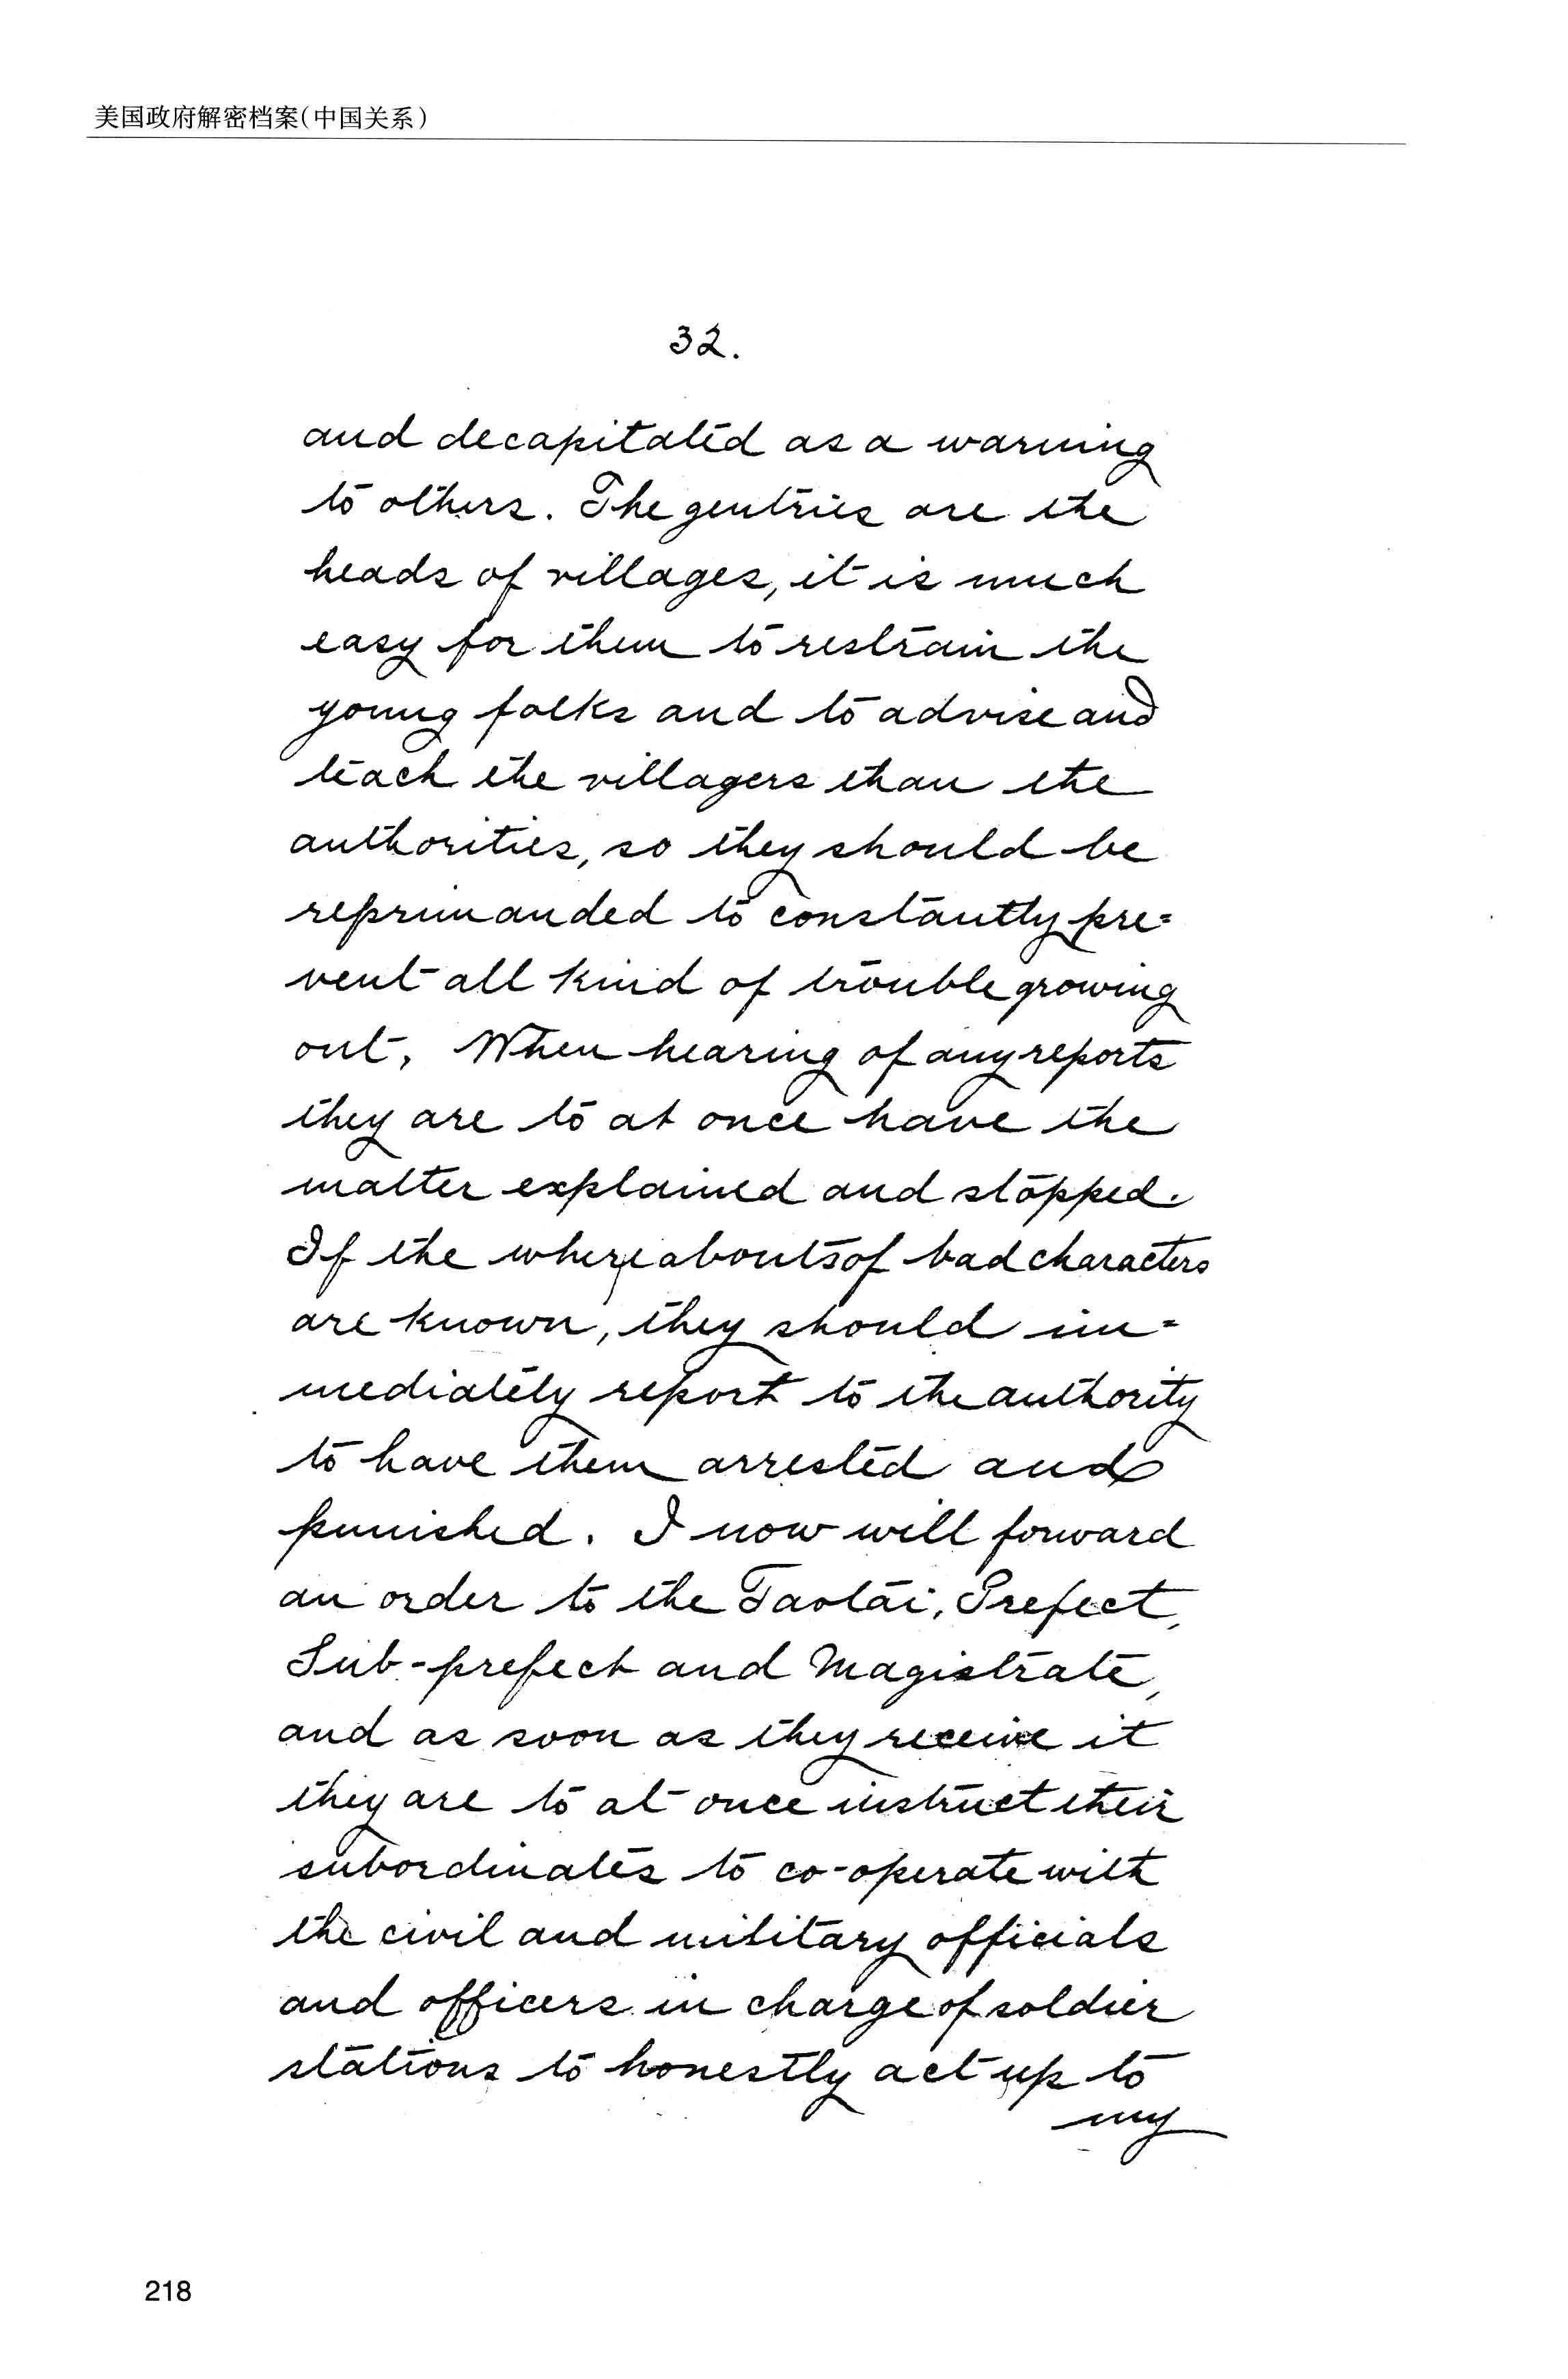 美国政府解密档案(中国关系)
32.
and decapitated as a warning
to others. The gentries are the
heads of villages, it is much
easy for them to restrain the
young folks and to advise and
teach the villagers than the
authorities, so they should be
reprimanded to constantly pre=
vent all kind of trouble growing
out. When hearing of any reports
they are to at once have the
matter explained and stopped.
If the whereabouts of bad characters
are known, they should im=
mediately report to the authority
to have them arrested and
punished. I now will forward
an order to the Taotai, Prefect,
Sub-prefect and Magistrate,
and as soon as they receive it
they are to at once instruct their
subordinates to co-operate with
the civil and military officials
and officers in charge of soldier
stations to honestly act up to
my
218